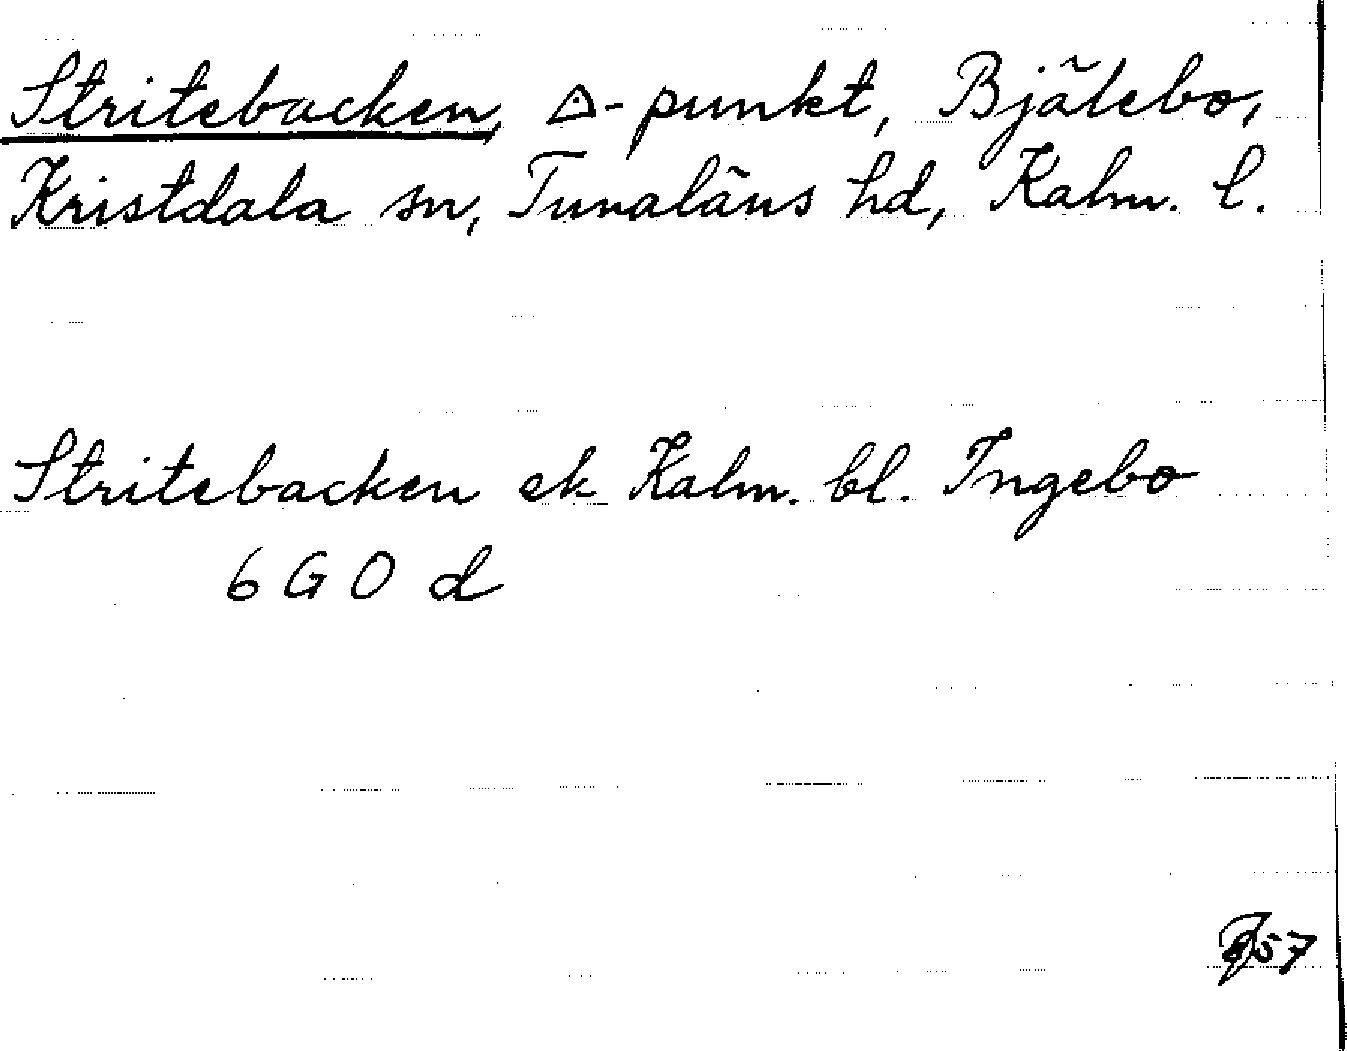 Stritebacken, △-punkt, Bjälebo,
Kristdala sn, Tunaläns hd, Kalm. l.
Stritebacken ek Kalm. bl. Ingebo
6 G O d
57